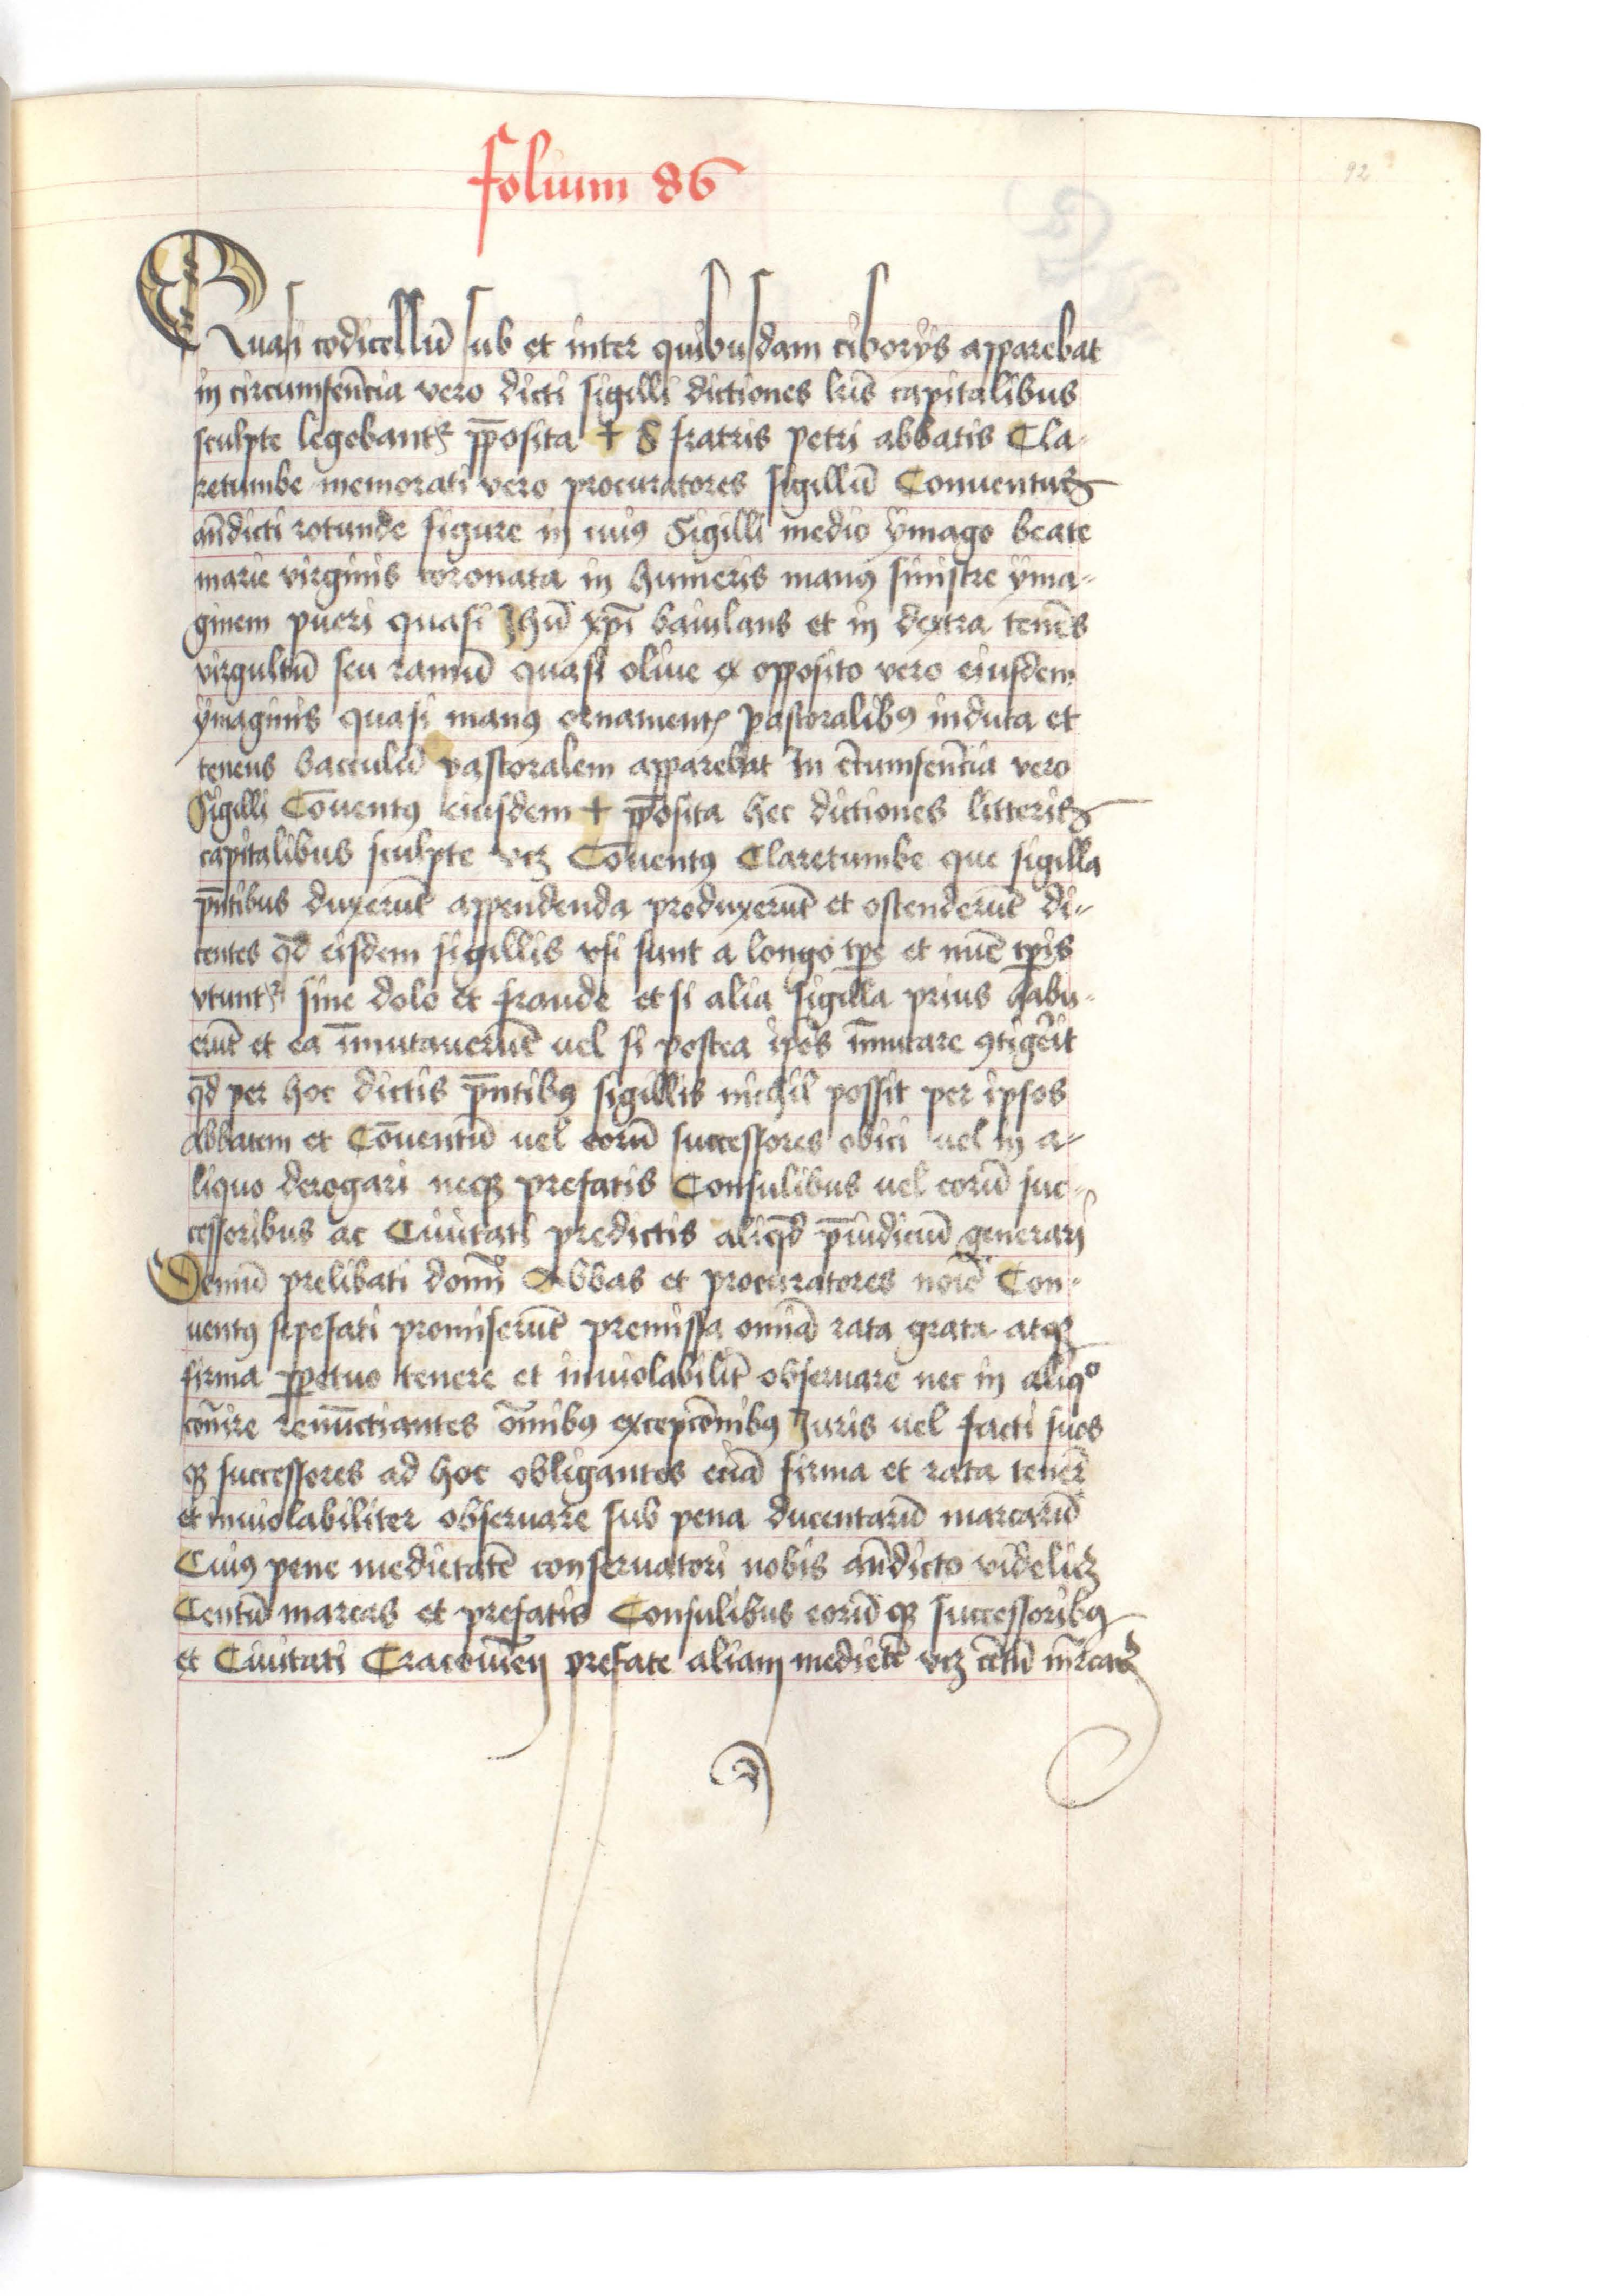 folium 86
92
Quasi codicellū sub et inter quibusdam ciborys apparebat
in circumferēcia vero dicti sigilli dictiones lr̄is capitalibus
sculpte legebantʳ p̄posita + S fratris petri abbatis Cla-
retumbe memorati vero procuratores sigillū Conuentus
an̄dicti rotunde figure in cuiꝰ Sigilli medio ymago beate
marie virginis coronata in humeris manꝰ sinistre yma-
ginem pueri quasi Jhū xp̄i baiulans et in dextra tenēs
virgultū seu ramū quasi oliue ex opposito vero eiusdem
ymaginis quasi manꝰ ornamentꝭ pastoralibꝰ induta et
tenens bacculū pastoralem apparebat In c̄cumferēcia vero
Sigilli Cōuentꝰ eiusdem + p̄posita hec dictiones litteris
capitalibus sculpte vcꝫ Cōuentꝰ Claretumbe que sigilla
p̄ntibus duxerūt appendenda produxerūt et ostenderūt di-
centes qd̄ eisdem sigillis vsi sunt a longo tp̄e et nūc tp̄is
vtuntʳ sine dolo et fraude et si alia sigilla prius habu-
erūt et ea īmutauerūt uel si postea ip̄os īmutare ꝯtigēit
qd̄ per hoc dictis p̄ntibꝰ sigillis nichil possit per ipsos
Abbatem et Cōuentū uel eorū successores obici uel in a-
liquo derogari neqꝫ prefatis Consulibus uel eorū suc-
cessoribus ac Ciuitati predictis aliqd̄ p̄iudiciū generari
Demū prelibati domī Abbas et procuratores noīe Con-
uentꝰ sepefati promiserūt premissa omīa rata grata atqꝫ
firma ꝑpetuo tenere et inuiolabilit̄ obseruare nec in aliqº
cōuīre renūctiantes om̄ibꝰ excepcōnibꝰ Juris uel facti suos
qꝫ successores ad hoc obligantes eciā firma et rata tenēr
et inuiolabiliter obseruare sub pena ducentarū marcarū
Cuiꝰ pene medietatē conseruatori nobis an̄dicto videlicꝫ
Centū marcas et prefatis Consulibus eorū qꝫ successoribꝰ
et Ciuitati Cracouieñ prefate aliam medietē vcꝫ cētū m̄rcaꝝ